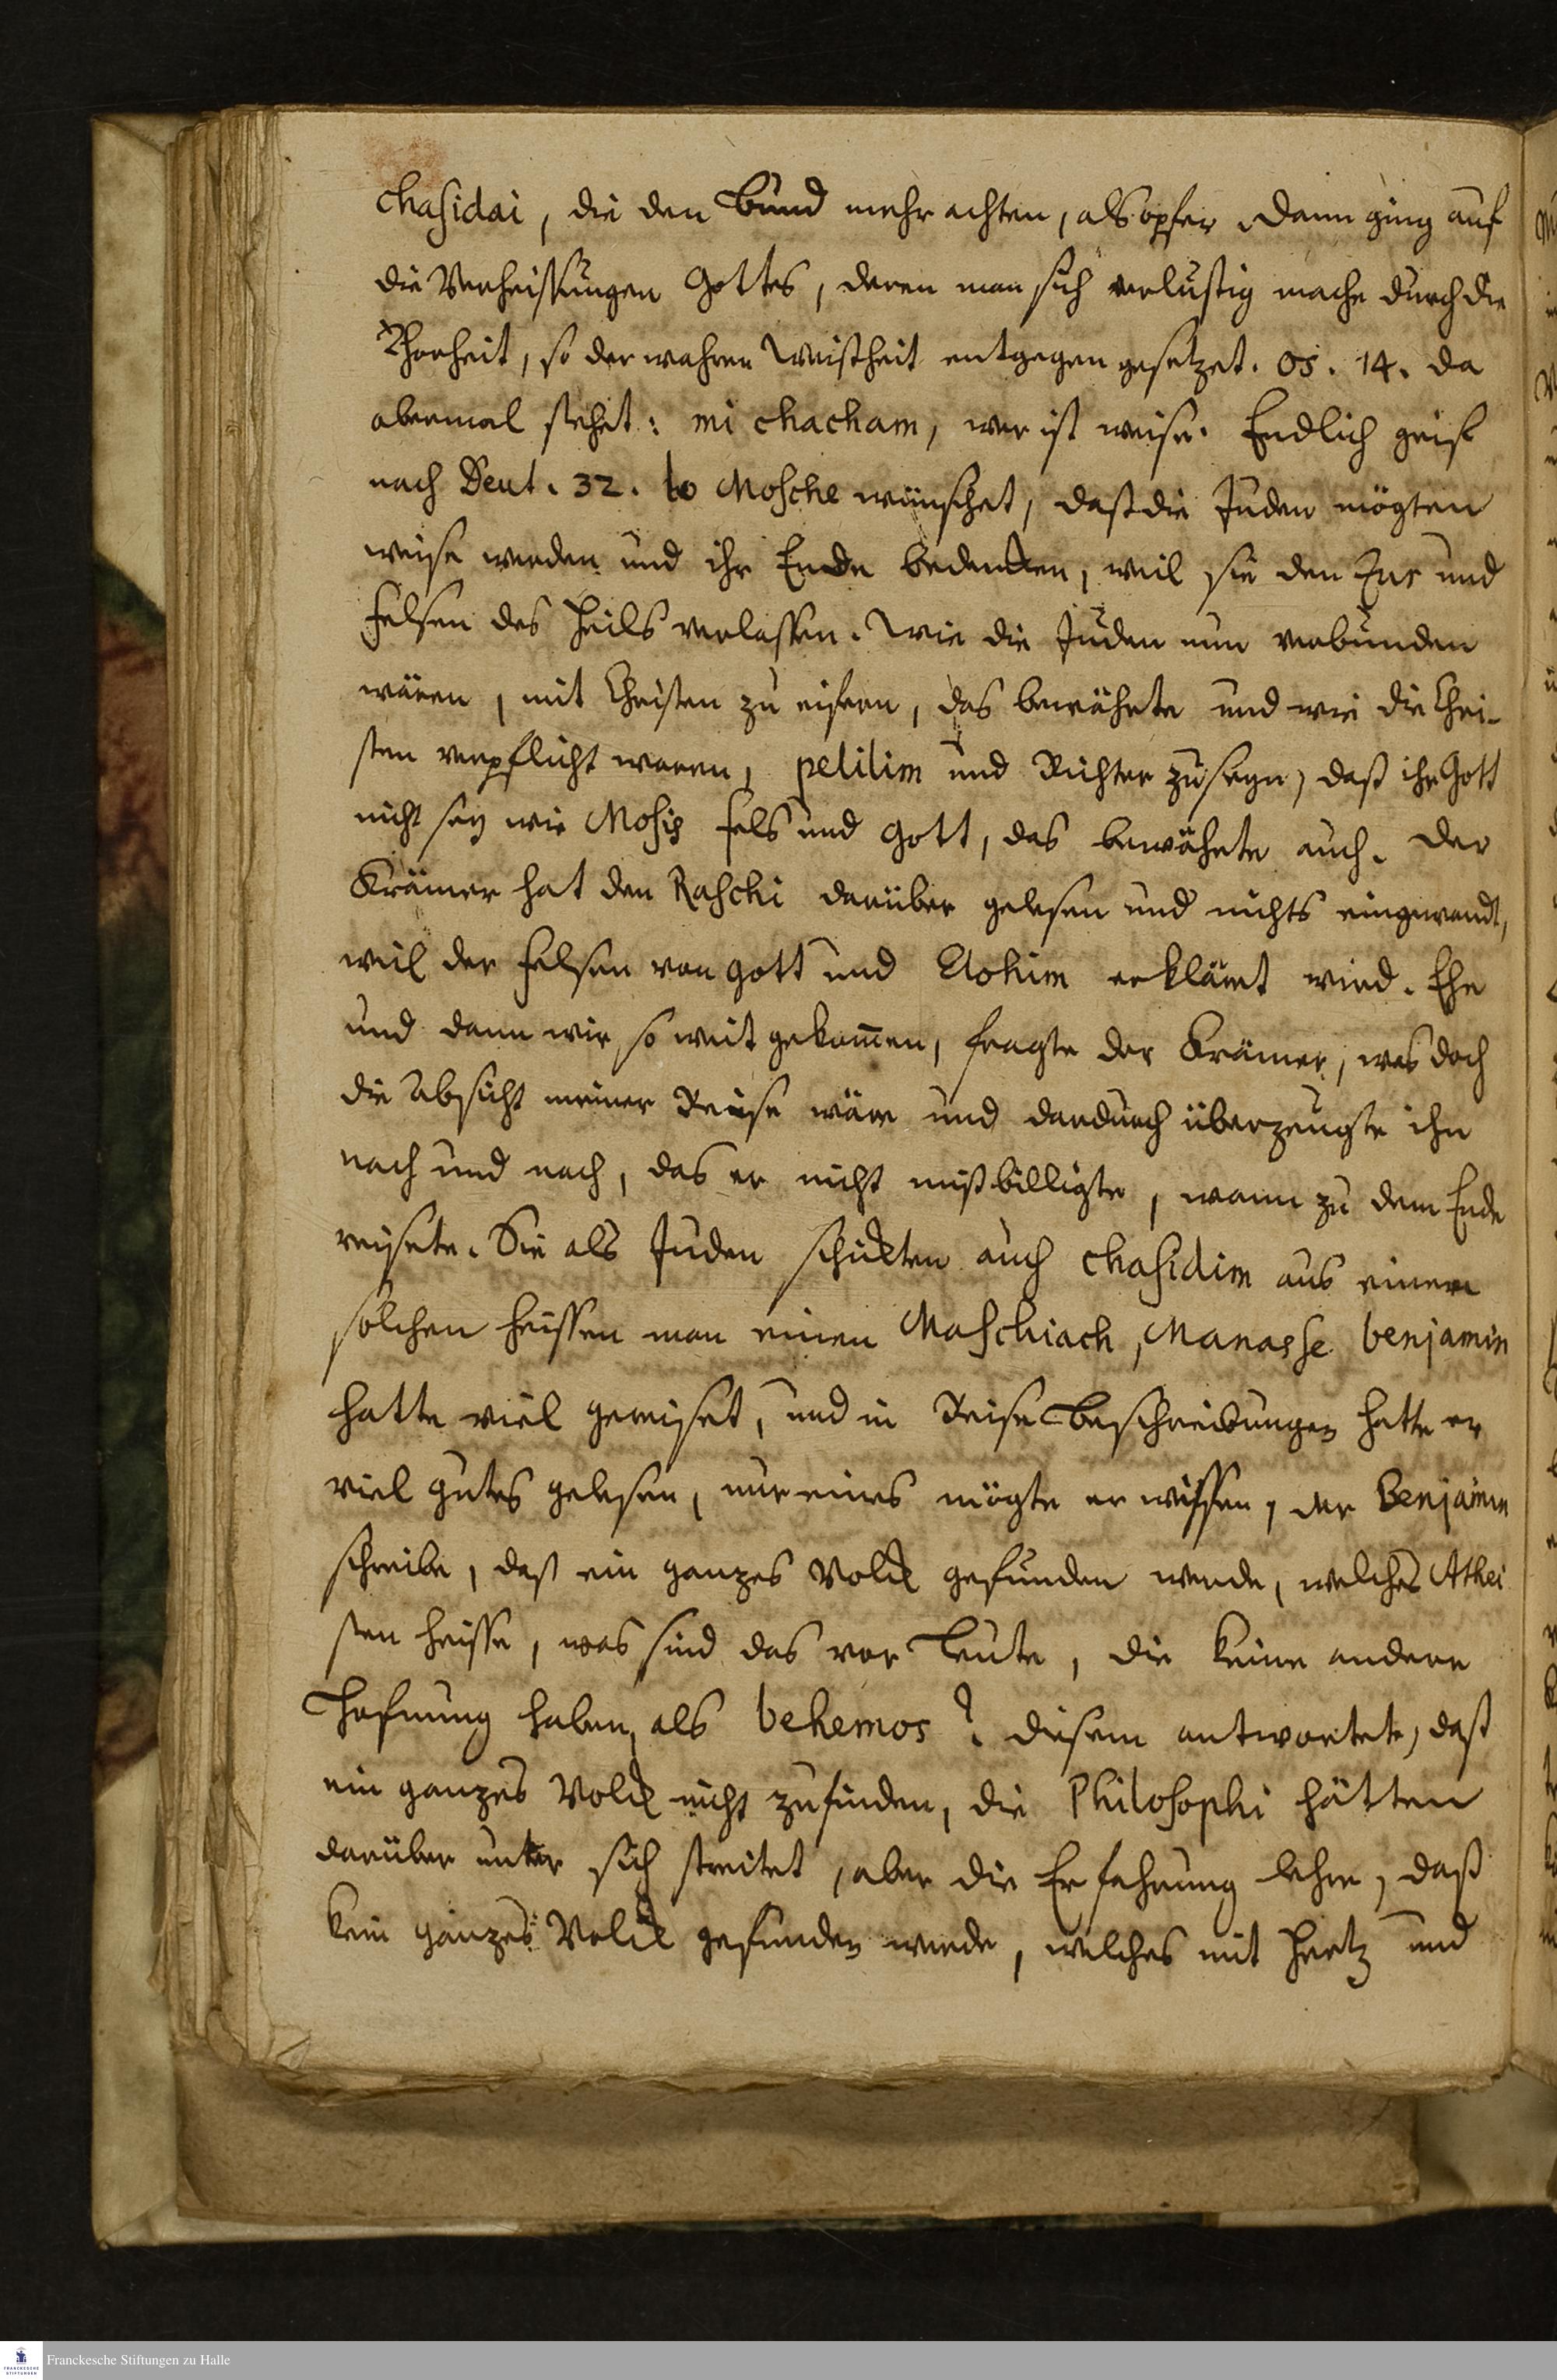 chasidai, die den Bund mehr achten, als opfer. Dann ging auf
die Verheissungen Gottes, deren man sich verlustig mache durch die
Thorheit, so der wahren Weisheit entgegen gesetzet. os. 14. da
abermal stehet: mi chacham, wer ist weise. Endlich
nach Deut. 32. wo Mosche wünschet, daß die Juden mögten
weise werden und ihr Ende bedencken, weil sie den Zur und
Felsen des Heils verlassen. Wie die Juden nun verbunden
wären, mit Christen zu eifern, das bewährte und wie die Chri-
sten verpflicht waren, pelilim und Richter zu seyn, daß ihr Gott
nicht sey wie Mosis Fels und Gott, das bewährte auch. Der
Krämer hat den Raschi darüber gelesen und nichts eingewandt,
weil der Felsen von Gott und Elohim erklärt wird. Ehe
und dann wir so weit gekom̄en, fragte der Krämer, was doch
die Absicht meiner Reise wäre und dardurch überzeugte ihn
nach und nach, das er nicht mißbilligte, wann zu dem Ende
reisete. Sie als Juden schickten auch chasidim aus einen
solchen heissen man einen Maschiach, Manasse benjamin
hatte viel gereiset, und in Reise Beschreibungen hatte er
viel gutes gelesen, nur eines mögte er wissen, der Benjamin
schreibe, daß ein ganzes Volck gefunden werde, welches Athei
sten heisse, was sind das vor Leute, die keine andere
Hofnung haben, als behemos? diesem antwortete, daß
ein ganzes Volck nicht zu finden, die Philosophi hätten
darüber unter sich streitet, aber die Erfahrung lehre, daß
kein ganzes Volck gefunden werde, welches mit Hertz und
Franckesche Stiftungen zu Halle